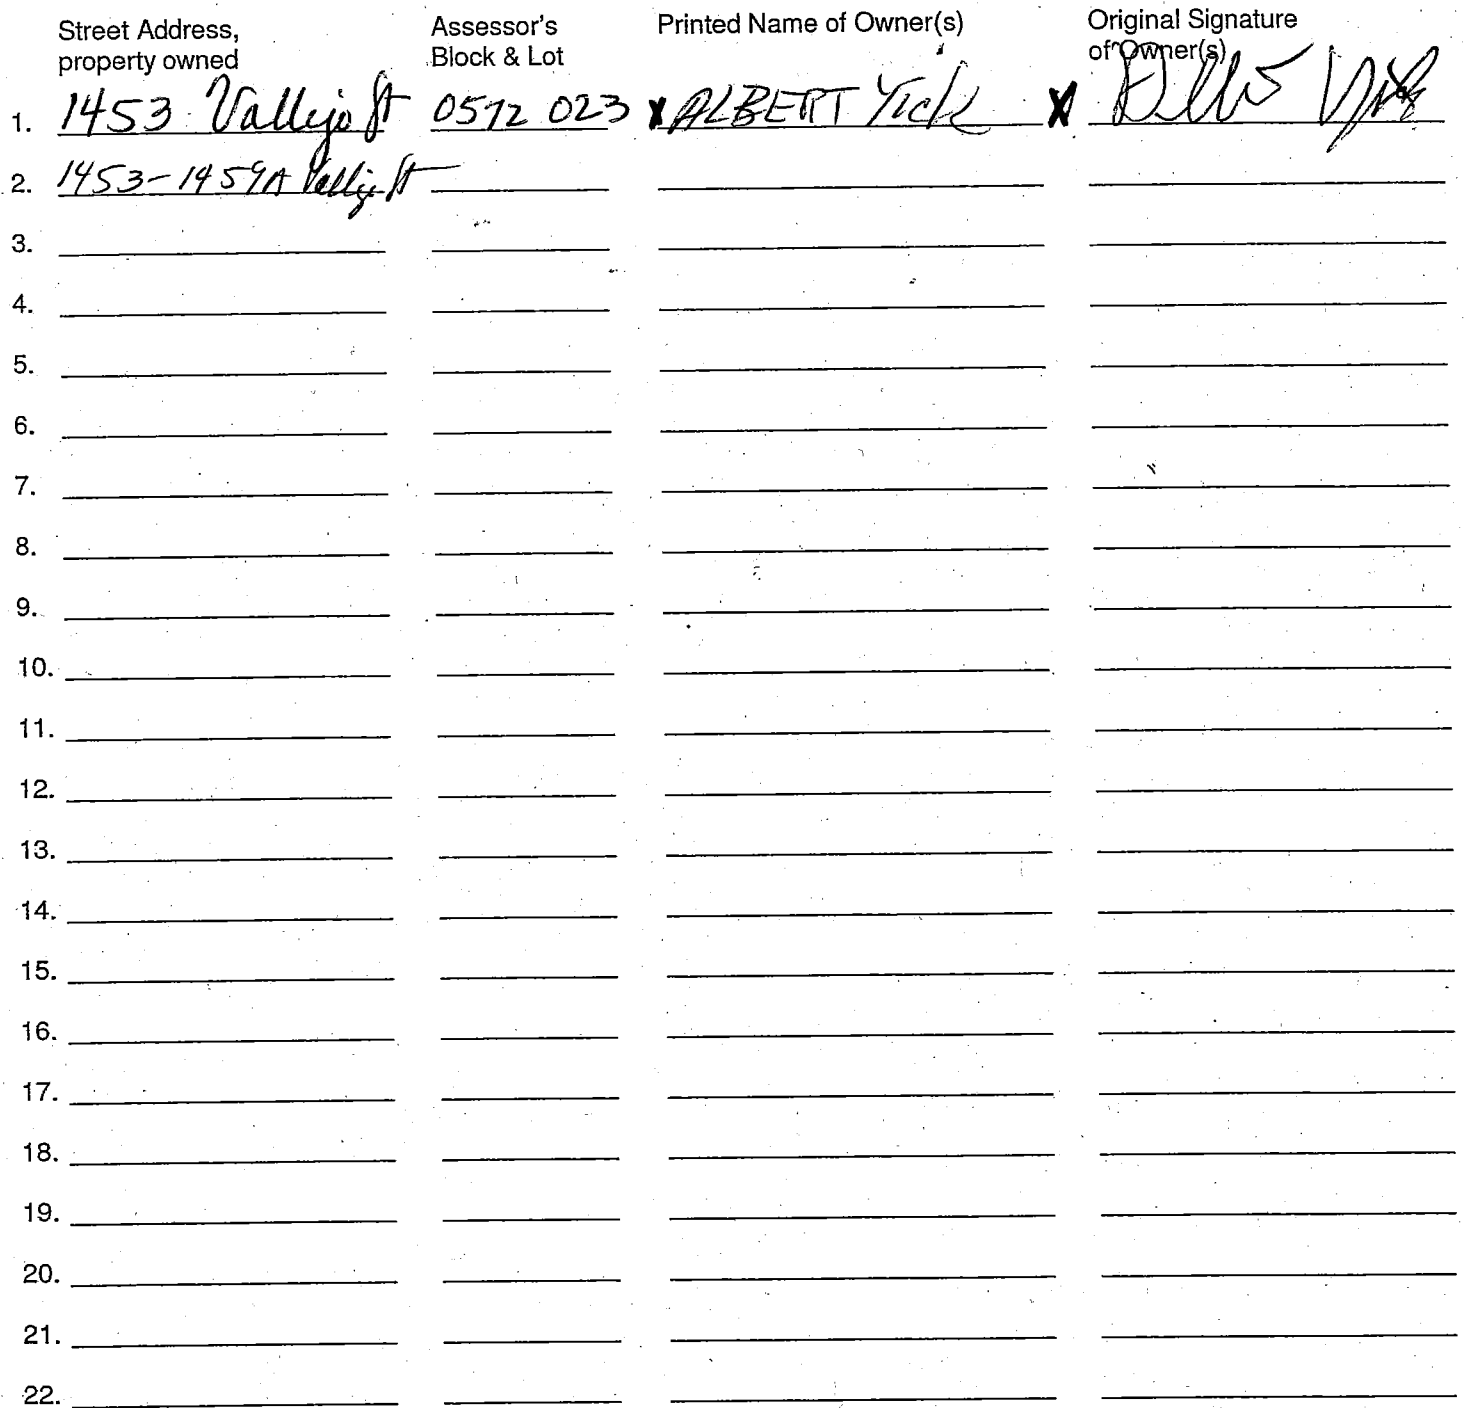 Street Address, property owned Assessor's Block & Lot Printed Name of Owner(s) Original Signature of Owner(s)
1. 1453 Vallejo St 0572 023 X ALBERT Yick X
2. 1453-1459A Vallejo St
3.
4.
5.
6.
7.
8.
9.
10.
11.
12.
13.
14.
15.
16.
17.
18.
19.
20.
21.
22.